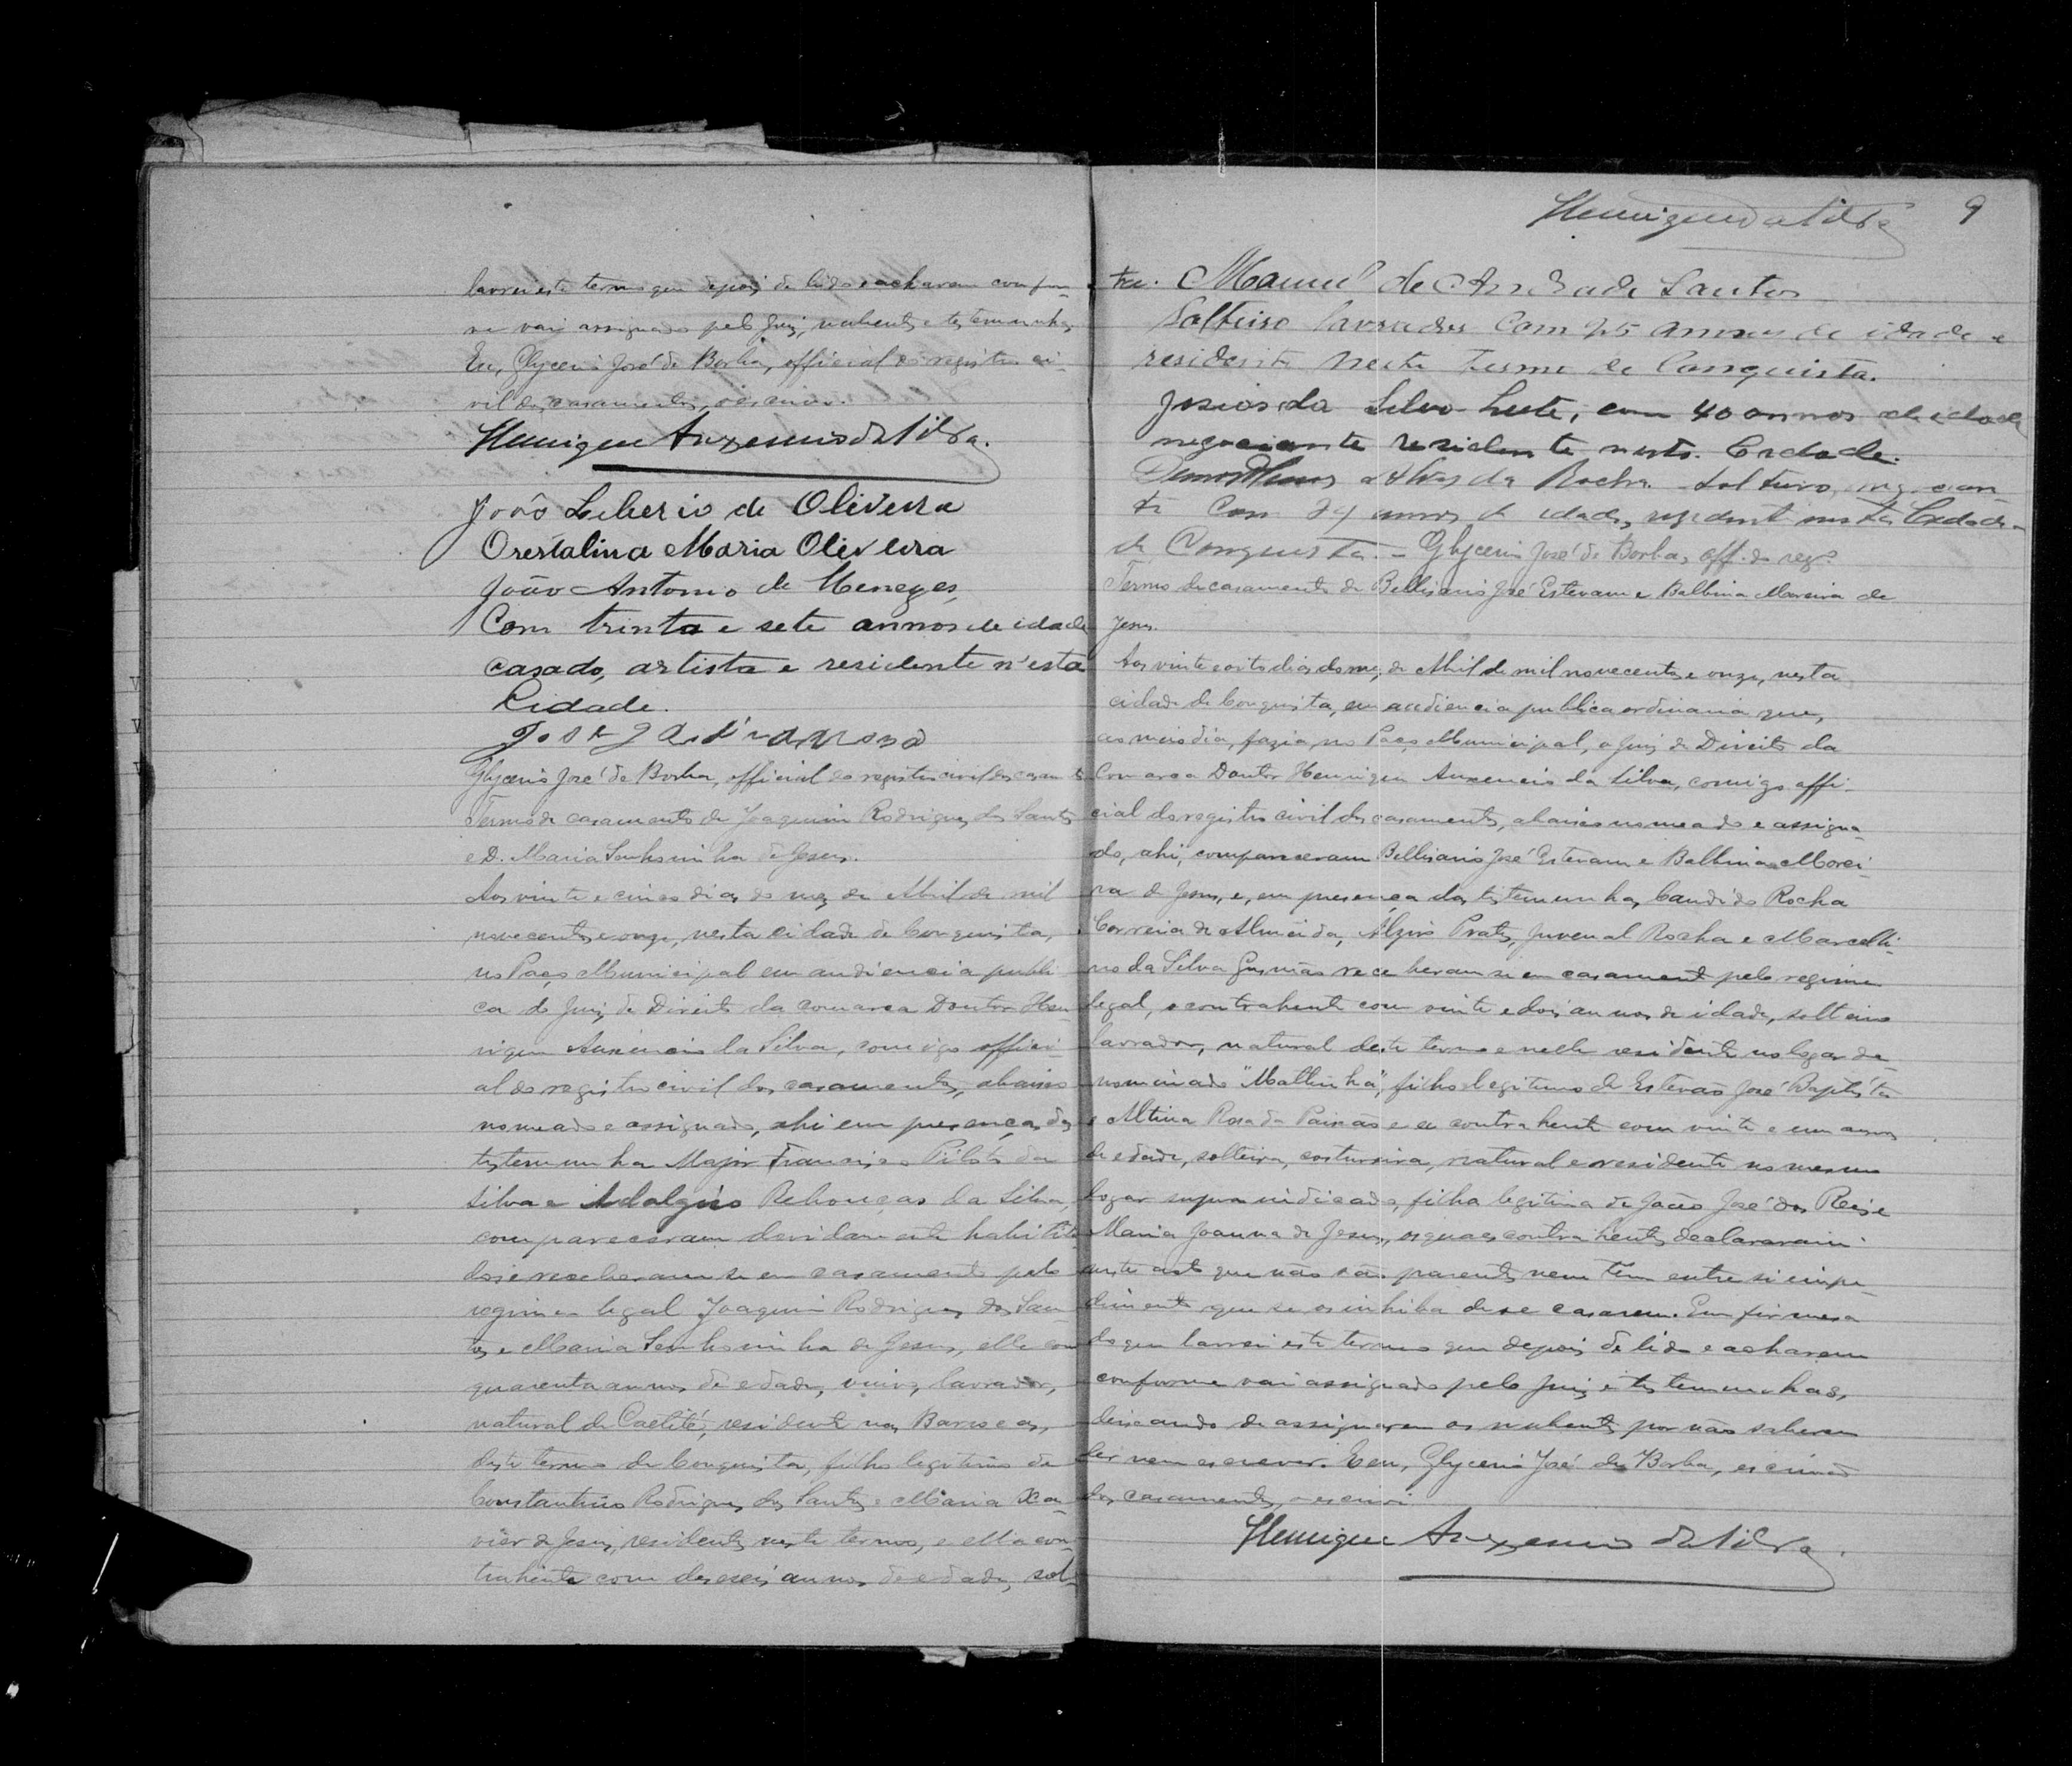 lavrei este termo que depois de lido e acharem confor-
me vai assignado pelo Juiz, nubentes e testemunhas
Eu, Glycerio José de Borba, official do registro ci-
vil dos casamentos, o escrivi.
Henrique Auxencio da Silva.
João Liberio de Oliveira
Orestalina Maria Oliveira
João Antonio de Menezes,
Com trinta e sete annos de idade
casado, artista e residente n'esta
Cidade.
José
Glycerio José de Borba, official do registro civil dos casamtos
Termo de casamento de Joaquim Rodrigues dos Santos
e D. Maria Senhorinha de Jesus.
Aos vinte e cinco dias do mez de Abril de mil
novecentos e onze, nesta cidade de Conquista,
no Paço Municipal em audiencia publi-
ca do Juiz de Direito da comarca Doutor Hen-
rique Auxencio da Silva, comigo offici-
al do registro civil dos casamentos, abaixo
nomeado e assignado, ahi em presença das
testemunha Major Francisco Piloto da
Silva e Adalgiso Rebouças da Silva,
compareceram devidamente habilita-
dos e receberam-se em casamento pelo
regimen legal Joaquim Rodrigues dos San-
tos e Maria Senhorinha de Jesus, elle com
quarenta annos de edade, viuvo, lavrador,
natural de Caetité, residente nas Barrocas,
deste termo de Conquista, filho legitimo de
Constantino Rodrigues dos Santos e Maria Xa-
vier de Jesus, residentes neste termo, e ella con-
trahente com deseseis annos de edade, sol-
Henrique da Silva 9
Manuel de Andrade Santos
Solteiro lavrador Com 25 annos de idade e
residente neste termo de Conquista.
Josias da Silva Leite, com 40 annos de edade
negociante residente nesta Cidade.
Demosthenes Alves da Rocha solteiro, negocian-
te Com 24 annos de idade, residente nesta Cidade
de Conquista. - Glycerio José de Borba, off. do regº
Termo de casamento de Bellisario José Estevam e Balbina Moreira de
Jesus.
Aos vinte e oito dias do mez de Abril de mil novecentos e onze, nesta
cidade de Conquista, em audiencia publica ordinaria que,
ao meio dia, fazia, no Paço Municipal, o Juiz de Direito da
Comarca Doutor Henrique Auxencio da Silva, comigo offi-
cial do registro civil dos casamentos, abaixo nomeado e assigna-
do, ahi, compareceram Bellisario José Estevam e Balbina Morei-
ra de Jesus, e, em presença das testemunhas, Candido Rocha
Correia de Almeida, Alziro Prates, Juvenal Rocha e Marcelli-
no da Silva Gusmão receberam-se em casamento pelo regimen
legal, o contrahente com vinte e dois annos de idade, solteiro
lavrador, natural deste termo e nelle residente no logar de-
nominado "Mattinha", filho legitimo de Estevão José Baptista
e Altina Rosa da Paixão e a contrahente com vinte e um annos
de edade, solteira, costureira, natural e residente no mesmo
logar supra indicado, filha legitima de João José dos Reis e
Maria Joanna de Jesus, os quaes contrahentes declararam
neste acto que não são parentes nem têm entre si impe-
dimento que se os inhiba de se casarem. Em firmesa
do que lavrei este termo que depois de lido e acharem
conforme vai assignado pelo Juiz e testemunhas,
deixando de assignarem os nubentes por não saberem
ler nem escrever. Eu, Glycerio José de Borba, escrivão
dos casamentos, o escrivi.
Henrique Auxencio da Silva.